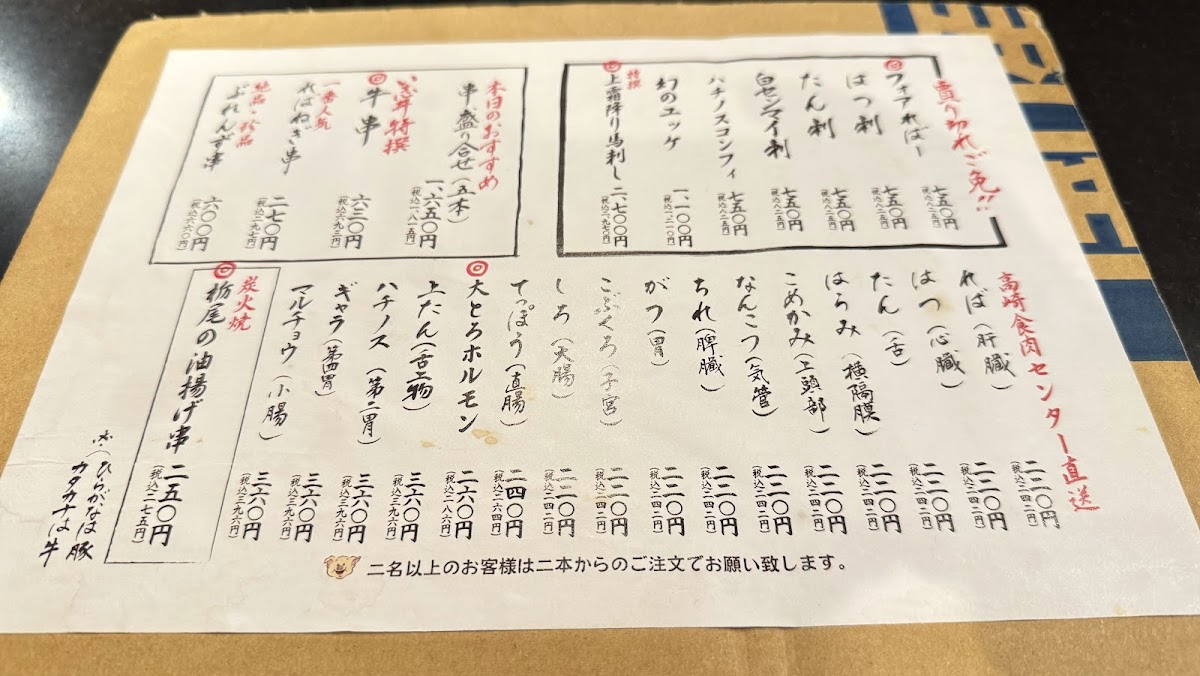 売り切れご免!!
◎フォアればー 七五〇円
(税込八二五円)
はつ刺 七五〇円
(税込八二五円)
たん刺 七五〇円
(税込八二五円)
白センマイ刺 七五〇円
(税込八二五円)
ハチノスコンフィ 七五〇円
(税込八二五円)
幻のエッケ 一、一〇〇円
(税込一、二一〇円)
特撰
◎上霜降り馬刺し 二、七〇〇円
(税込二、九七〇円)
本日のおすすめ
串盛り合せ(五本) 一、六五〇円
(税込一、八一五円)
特撰
◎牛串 六三〇円
(税込六九三円)
一番人気
ればねぎ串 二七〇円
(税込二九七円)
絶品・珍品
ぶれんず串 六〇〇円
(税込六六〇円)
高崎食肉センター直送
れば(肝臓) 二二〇円
(税込二四二円)
はつ(心臓) 二二〇円
(税込二四二円)
たん(舌) 二二〇円
(税込二四二円)
はらみ(横隔膜) 二二〇円
(税込二四二円)
こめかみ(上頭部) 二二〇円
(税込二四二円)
なんこつ(気管) 二二〇円
(税込二四二円)
ちれ(脾臓) 二二〇円
(税込二四二円)
がつ(胃) 二二〇円
(税込二四二円)
こぶくろ(子宮) 二二〇円
(税込二四二円)
しろ(大腸) 二二〇円
(税込二四二円)
てっぽう(直腸) 二四〇円
(税込二六四円)
◎大とろホルモン 二六〇円
(税込二八六円)
上たん(舌上物) 三六〇円
(税込三九六円)
ハチノス(第二胃) 三六〇円
(税込三九六円)
ギャラ(第四胃) 三六〇円
(税込三九六円)
マルチョウ(小腸) 三六〇円
(税込三九六円)
炭火焼
◎栃尾の油揚げ串 二五〇円
(税込二七五円)
※(ひらがなは豚
カタカナは牛
二名以上のお客様は二本からのご注文でお願い致します。